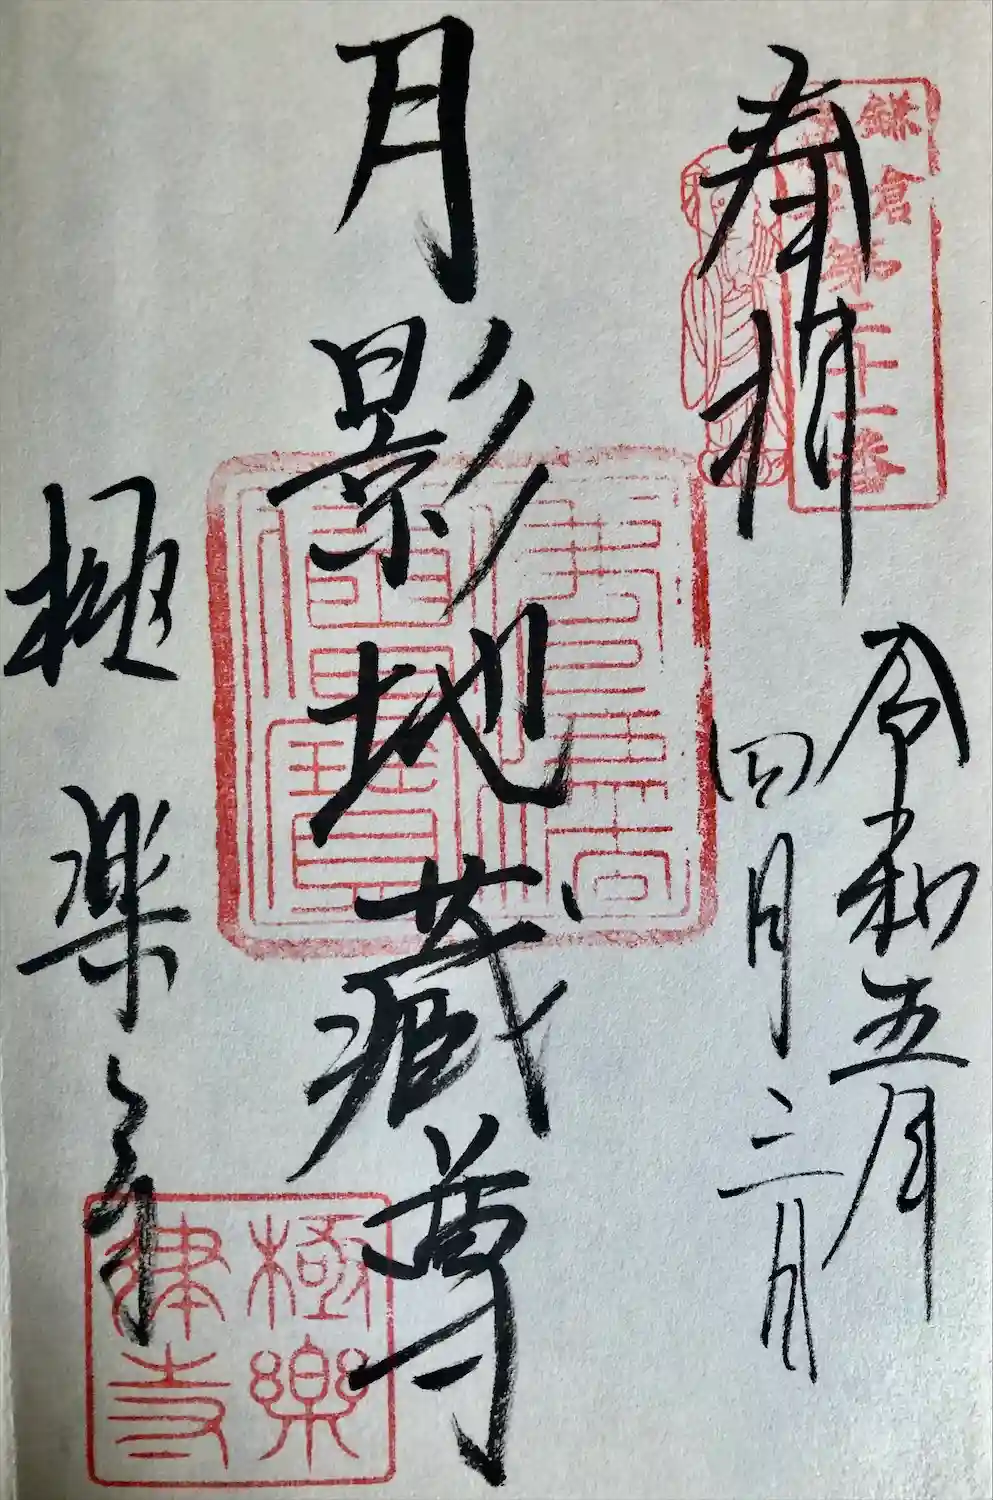 奉拝
鎌倉
第二十二番
令和五年
四月三日
月影地蔵尊
極楽寺
極樂
律寺